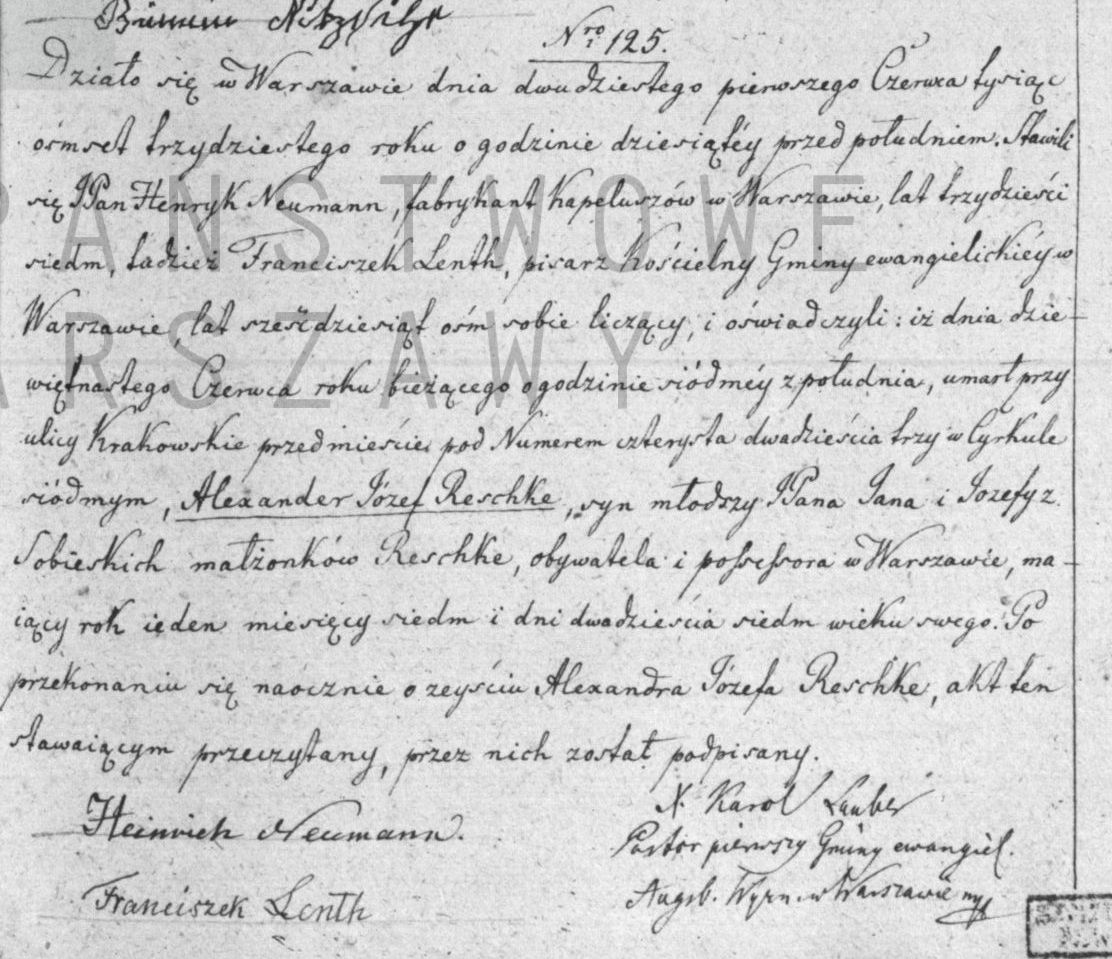 Nro 125.
Działo się w Warszawie dnia dwudziestego pierwszego Czerwca tysiąc
ośmset trzydziestego roku o godzinie dziesiątéy przed południem. Stawili
się JPan Henryk Neumann, fabrykant Kapeluszów w Warszawie, lat trzydzieści
siedm, tadzież Franciszek Lenth, pisarz Kościelny Gminy ewangielickiéy w
Warszawie, lat sześćdziesiąt ośm sobie liczący, i oświadczyli: iż dnia dzie-
więtnastego Czerwca roku bieżącego o godzinie siódméy z południa, umarł przy
ulicy Krakowskie przedmieście pod Numerem czterysta dwadzieścia trzy w Cyrkule
siódmym, Alexander Józef Reschke, syn młodszy JPana Jana i Jozefy z
Sobieskich małżonków Reschke, obywatela i possessora w Warszawie, ma-
iący rok ieden miesięcy siedm i dni dwadzieścia siedm wieku swego. Po
przekonaniu się naocznie o zeyściu Alexandra Józefa Reschke, akt ten
stawaiącym przeczytany, przez nich został podpisany.
Heinrich Neumann.
X. Karol Lauber
Pastor pierwszy Gminy ewangiel.
Franciszek Lenth
Augsb. Wyzn. w Warszawie
PAŃSTWOWE
WARSZAWY